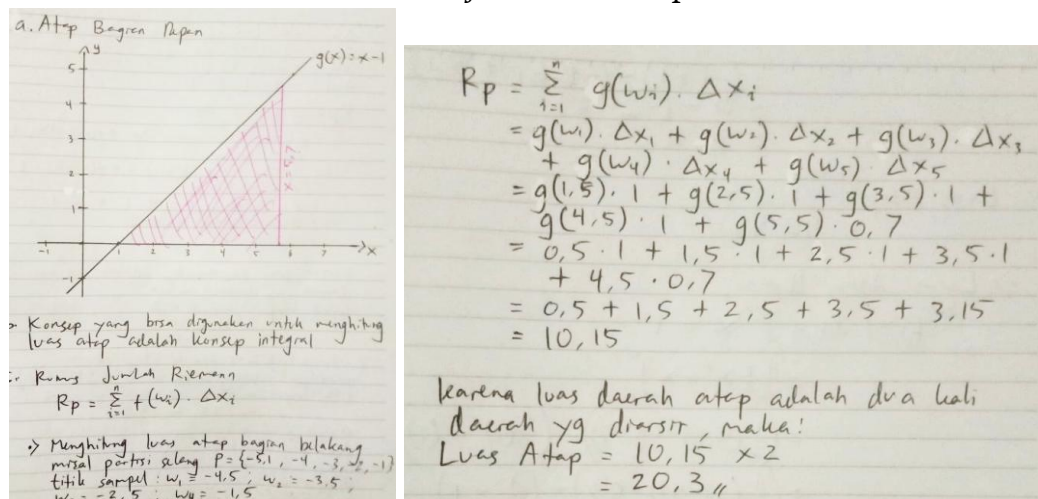 a. Atap Bagian Depan
y
g(x) = x-1
5
4
3
2
1
x = 5,7
-1
1
2
3
4
5
7
x
-1
Konsep yang bisa digunakan untuk menghitung
luas atap adalah konsep integral
Rumus Jumlah Riemann
Rp = n Σ i=1 f(wi) . Δxi
•> Menghitung luas atap bagian belakang
misal partisi selang P = {-5,1 , -4, -3, -2, -1}
titik sampel : w1 = -4,5 ; w2 = -3,5 ;
= -2,5 ; w4 = -1,5
Rp = n Σ i=1 g(wi) . Δxi
= g(w1) . Δx1 + g(w2) . Δx2 + g(w3) . Δx3
+ g(w4) . Δx4 + g(w5) . Δx5
= g(1,5) . 1 + g(2,5) . 1 + g(3,5) . 1 +
g(4,5) . 1 + g(5,5) . 0,7
= 0,5 . 1 + 1,5 . 1 + 2,5 . 1 + 3,5 . 1
+ 4,5 . 0,7
= 0,5 + 1,5 + 2,5 + 3,5 + 3,15
= 10,15
karena luas daerah atap adalah dua kali
daerah yg diarsir, maka:
Luas Atap = 10,15 x 2
= 20,3 //